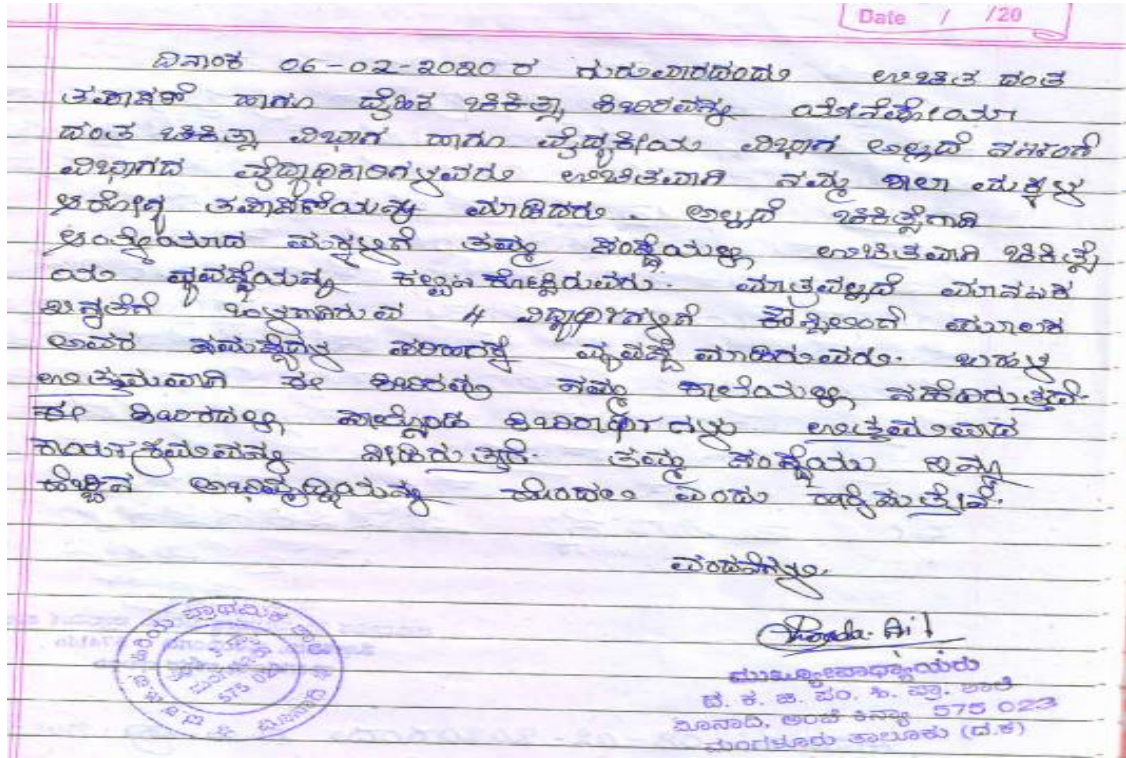 Date / /20
ದಿನಾಂಕ 06-02-2020 ರ ಗುರುವಾರದಂದು ಉಚಿತ ದಂತ
ತಪಾಸಣೆ ಹಾಗೂ ದೈಹಿಕ ಚಿಕಿತ್ಸಾ ಶಿಬಿರವನ್ನು ಯೇನೆಪೋಯಾ
ದಂತ ಚಿಕಿತ್ಸಾ ವಿಭಾಗ ಹಾಗೂ ವೈದ್ಯಕೀಯ ವಿಭಾಗ ಅಲ್ಲದೆ ನರ್ಸಿಂಗ್
ವಿಭಾಗದ ವೈದ್ಯಾಧಿಕಾರಿಗಳವರು ಉಚಿತವಾಗಿ ನಮ್ಮ ಶಾಲಾ ಮಕ್ಕಳ
ಆರೋಗ್ಯ ತಪಾಸಣೆಯನ್ನು ಮಾಡಿದರು. ಅಲ್ಲದೆ ಚಿಕಿತ್ಸೆಗಾಗಿ
ಮಕ್ಕಳಿಗೆ ತಮ್ಮ ಸಂಸ್ಥೆಯಲ್ಲಿ ಉಚಿತವಾಗಿ ಚಿಕಿತ್ಸೆ
ಯ ವ್ಯವಸ್ಥೆಯನ್ನು ಮಾತ್ರವಲ್ಲದೆ ಮಾನಸಿಕ
ಖಿನ್ನತೆಗೆ 4 ವಿದ್ಯಾರ್ಥಿಗಳಿಗೆ ಕೌನ್ಸಿಲಿಂಗ್ ಮೂಲಕ
ಅವರ ಸಮಸ್ಯೆಗಳ ಪರಿಹಾರಕ್ಕೆ ವ್ಯವಸ್ಥೆ ಮಾಡಿರುವರು. ಬಹಳ
ಉತ್ತಮವಾಗಿ ಈ ಶಿಬಿರವು ನಮ್ಮ ಶಾಲೆಯಲ್ಲಿ ನಡೆದಿರುತ್ತದೆ.
ಈ ಶಿಬಿರದಲ್ಲಿ ಪಾಲ್ಗೊಂಡ ಶಿಬಿರಾರ್ಥಿಗಳು ಉತ್ತಮವಾದ
ಕಾರ್ಯಕ್ರಮವನ್ನು ನೀಡಿರುತ್ತಾರೆ. ತಮ್ಮ ಸಂಸ್ಥೆಯು ಇನ್ನೂ
ಹೆಚ್ಚಿನ ಅಭಿವೃದ್ಧಿಯನ್ನು ಹೊಂದಲಿ ಎಂದು ಹಾರೈಸುತ್ತೇನೆ.
ವಂದನೆಗಳು
ಮುಖ್ಯೋಪಾಧ್ಯಾಯರು
ದ. ಕ. ಜಿ. ಪಂ. ಹಿ. ಪ್ರಾ. ಶಾಲೆ
ಮೀನಾದಿ, ಅಂಚೆ ಕಿನ್ಯಾ 575 023
ಮಂಗಳೂರು ತಾಲೂಕು (ದ.ಕ)
ಹಿರಿಯ ಪ್ರಾಥಮಿಕ ಶಾಲೆ
575 023